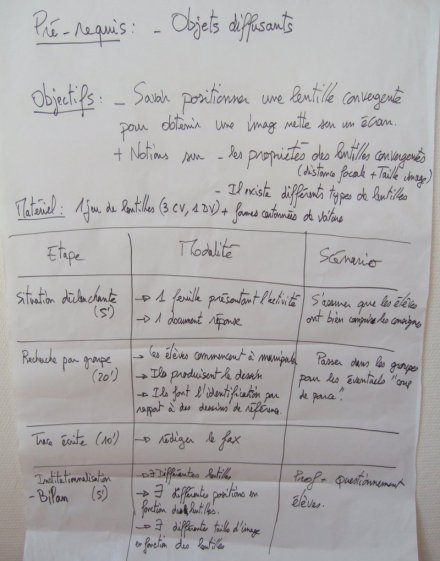 Pré-requis : - Objets diffusants
Objectifs : - Savoir positionner une lentille convergente
pour obtenir une image nette sur un écran.
+ Notions sur - les propriétés des lentilles convergentes
(distance focale + Taille image)
- Il existe différents types de lentilles
Matériel : 1 jeu de lentilles (3 CV, 1 DV) + formes cartonnées de voiture
Etape
Modalité
Scénario
Situation déclenchante
(5')
-> 1 feuille présentant l'activité
-> 1 document réponse
S'assurer que les élèves
ont bien compris les consignes
Recherche par groupe
(20')
-> Les élèves commencent à manipuler
-> Ils produisent le dessin
-> Ils font l'identification par
rapport à des dessins de référence.
Passer dans les groupes
pour les éventuels "coup
de pouce".
Trace écrite (10')
-> rédiger le fax
Institutionnalisation
- Bilan (5')
-> ∃ Différentes lentilles
-> ∃ différentes positions en
fonction des lentilles.
-> ∃ différentes taille d'image
en fonction des lentilles
Prof - Questionnement
élèves.